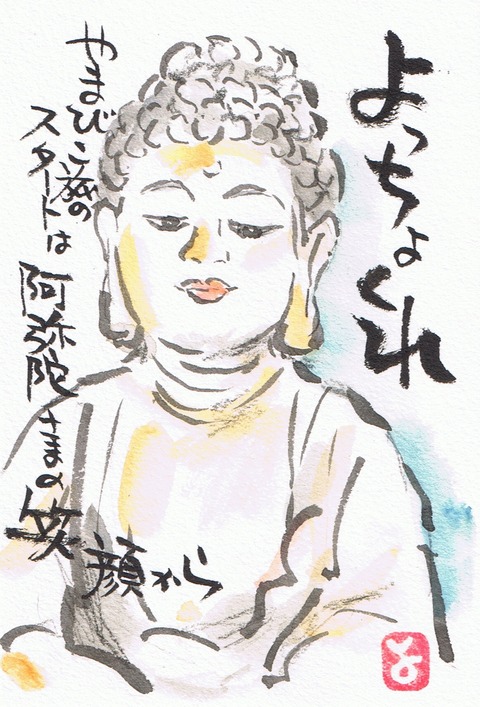 よっちょくれ
やまびこ旅の
スタートは
阿弥陀さまの笑
顔から